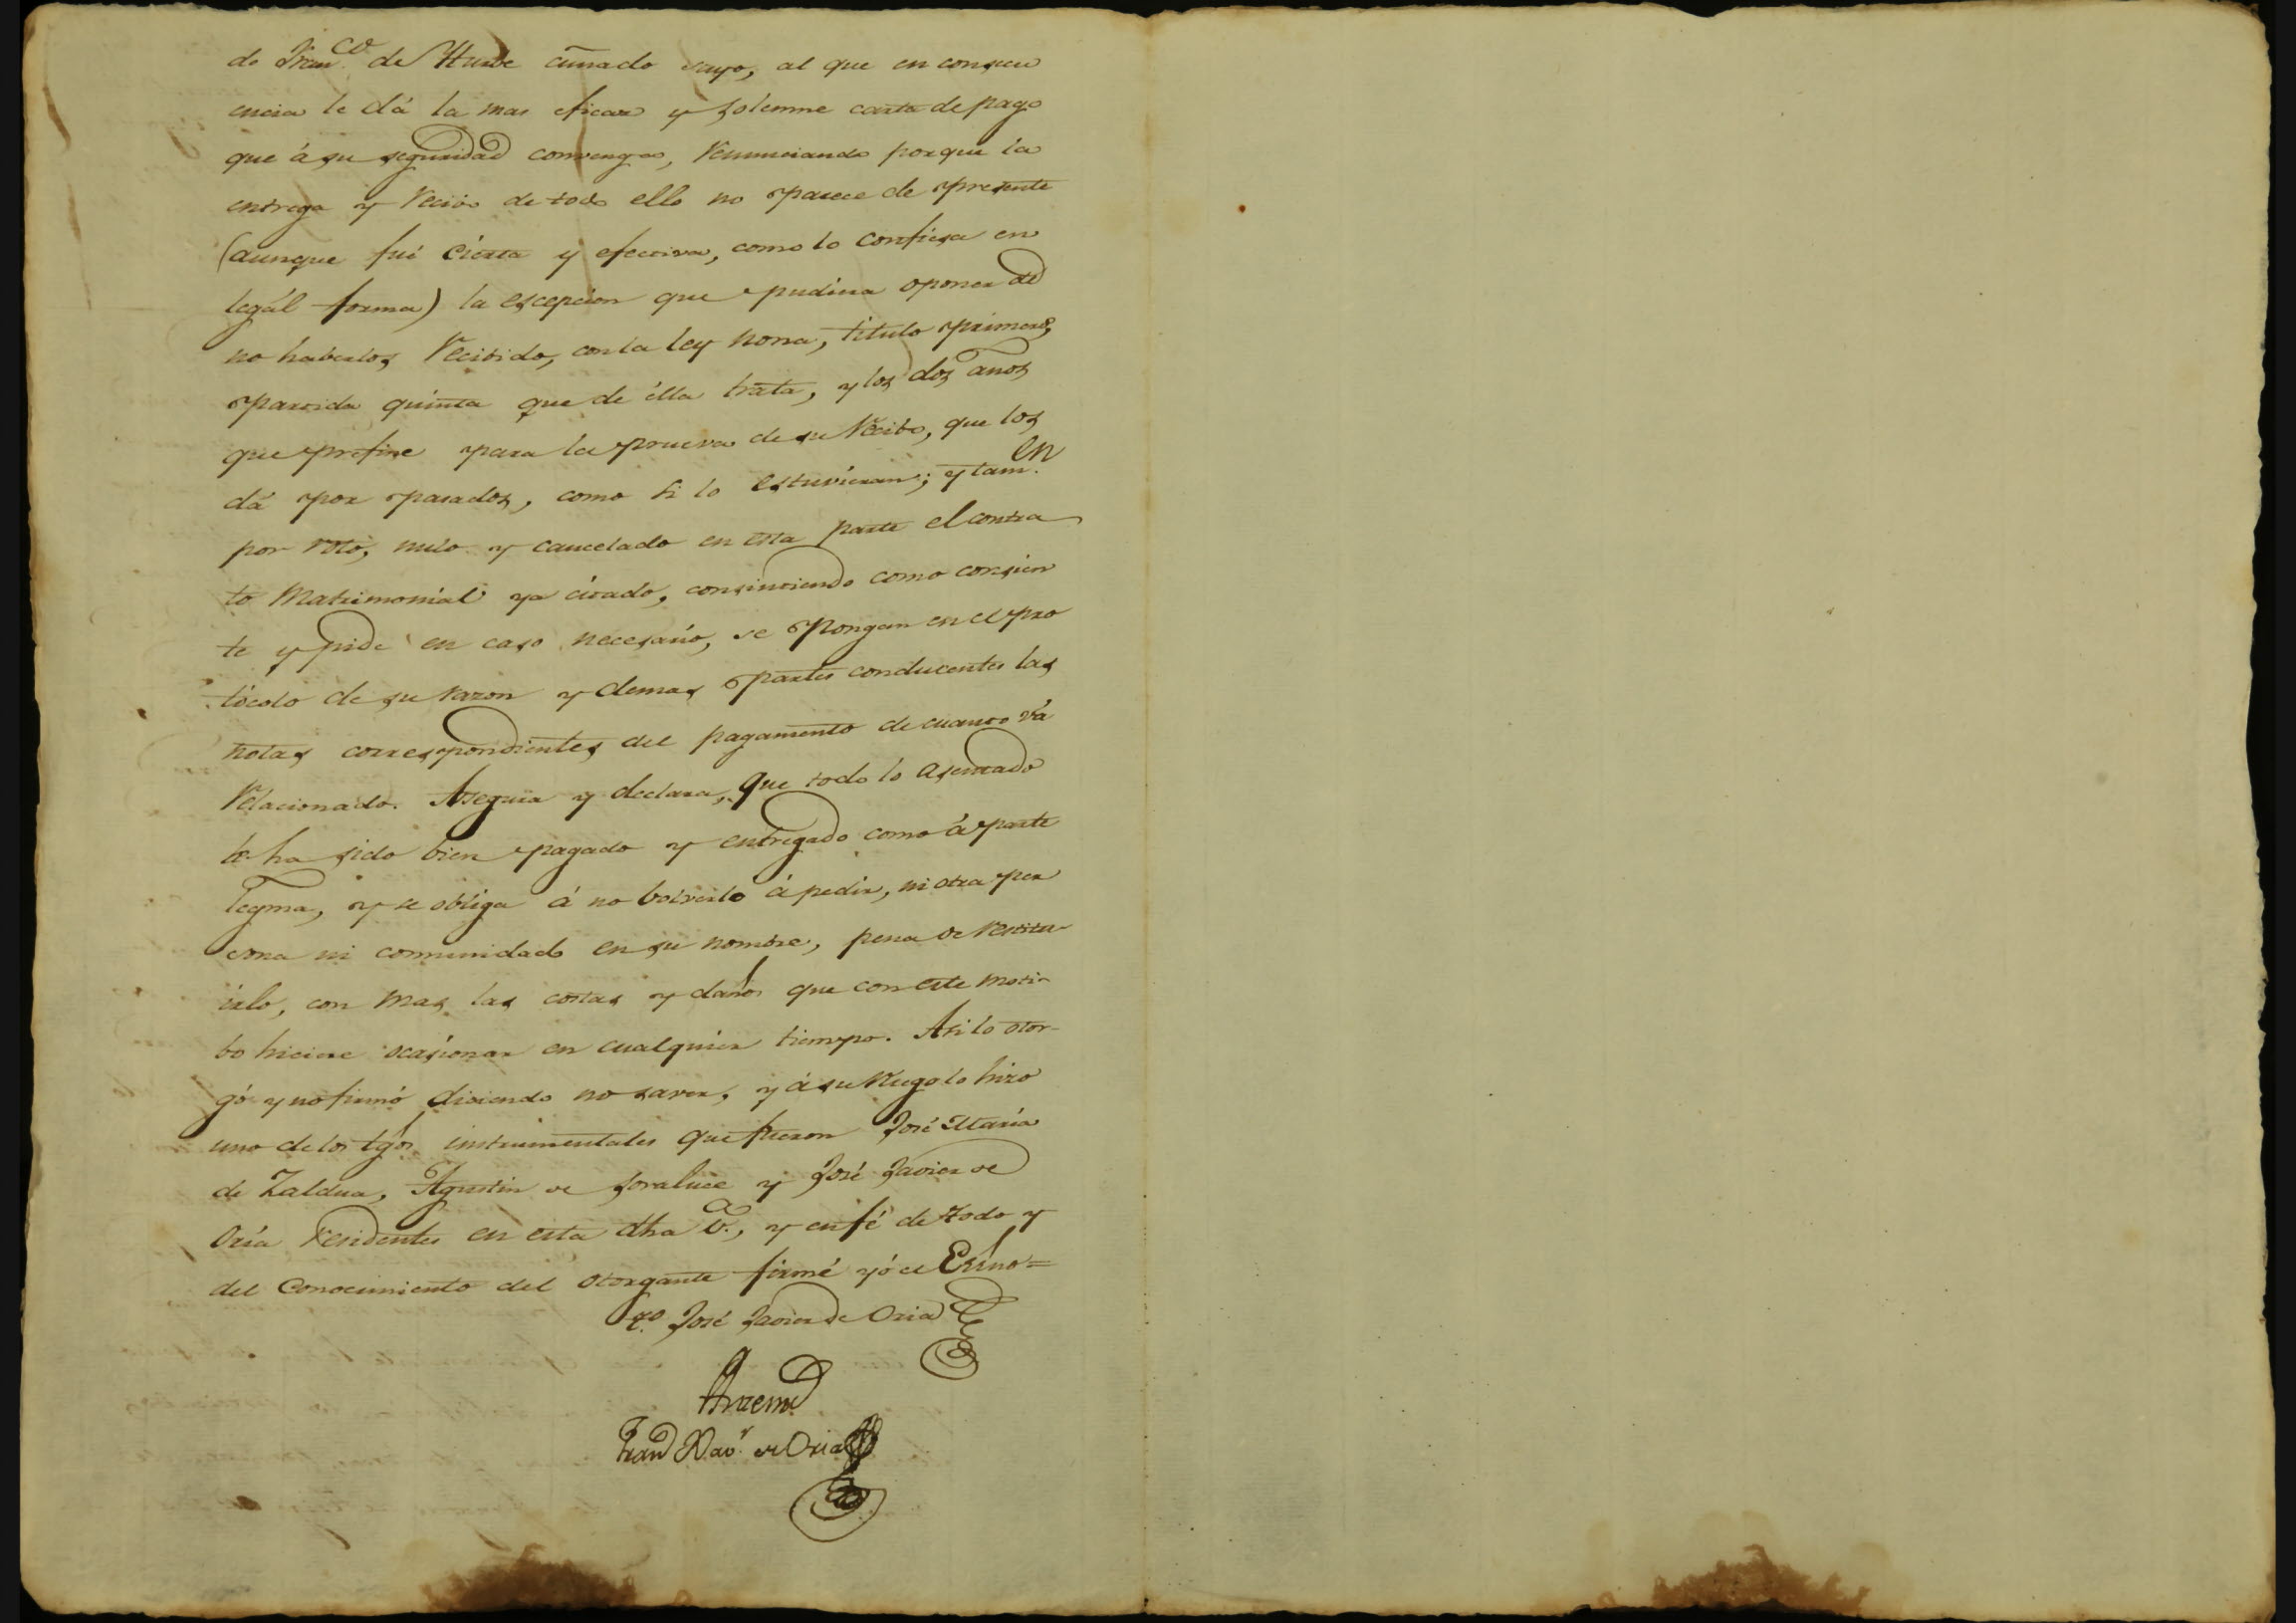 de Fran.co de Iturbe cuñado suyo, al que en consecu
encia le dá la mas eficaz y solemne carta de pago
que á su seguridad convenga, renunciando porque la
entrega y recivo de todo ello no parece de presente
(aunque fué cierta y efectiva, como lo confiesa en
legál forma) la escepcion que pudiera oponer de
no haberlos recibido, con la ley nona, titulo primero,
partida quinta que de élla trata, y los dos años
que prefine para la prueva de su recibo, que los
dá por pasados, como si lo estuvieran; y tam.en
por roto, nulo y cancelado en esta parte el contra
to Matrimonial ya citado, consintiendo como consien
te y pide en caso necesario, se pongan en el pro
tócolo de su razon y demas partes conducentes las
notas correspondientes del pagamento de cuanto vá
relacionado. Asegura y declara, que todo lo asentado
le ha sido bien pagado y entregado como á parte
legma, y se obliga á no bolverlo á pedir, ni otra per
sona ni comunidad en su nombre, pena de restitu-
irlo, con mas las costas y daños que con este moti-
bo hiciere ocasionar en cualquier tiempo. Asi lo otor-
gó y no firmó diciendo no saver, y á su ruego lo hizo
uno de los tgos. instrumentales que fueron José María
de Zaldua, Agustin de Soraluce y José Javier de
Oria residentes en esta dha V.a, y en fé de todo y
del Conocimiento del otorgante firmé yó el Essno=
t.go José Javier de Oria
Antemi
Fran.co Xav.r de Oria